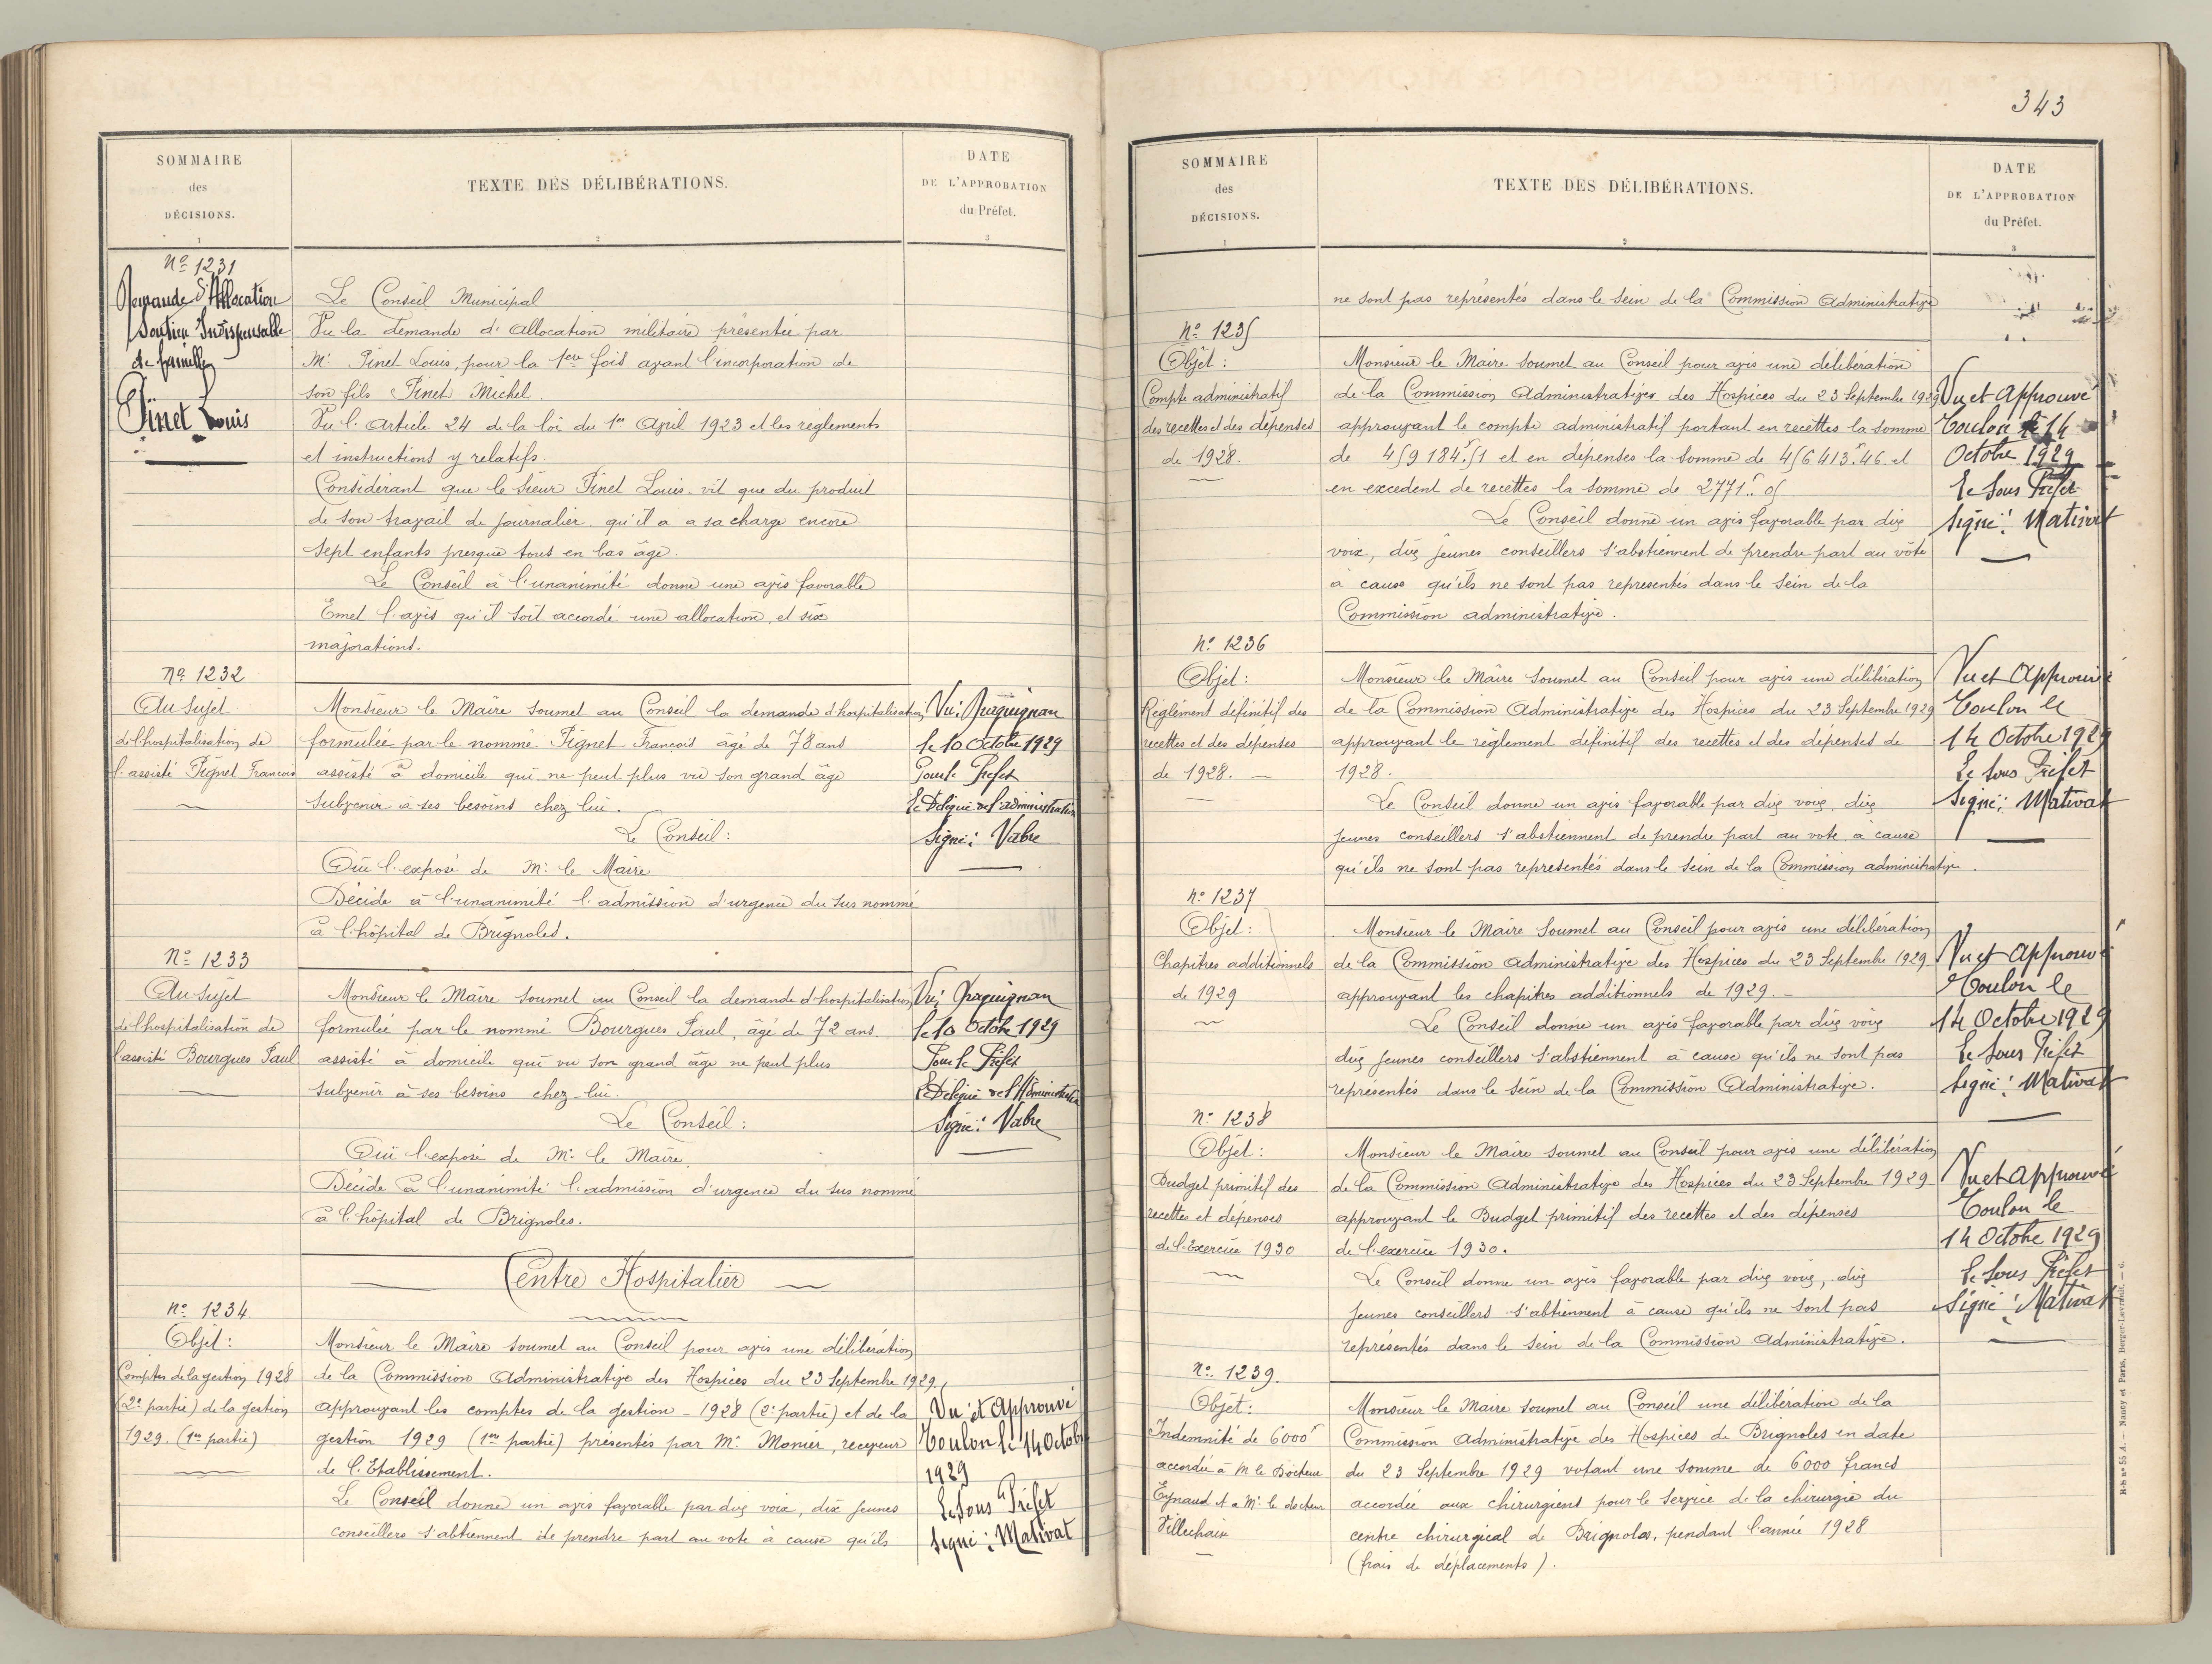 343
SOMMAIRE
des
DÉCISIONS.
1
TEXTE DES DÉLIBÉRATIONS.
2
DATE
DE L'APPROBATION
du Préfet.
3
No 1231
Demande d'Allocation
Soutien Indispensable
de famille
Pinet Louis
Le Conseil Municipal
Vu la demande d'allocation militaire présentée par
Mr Pinet Louis, pour la 1ere fois avant l'incorporation de
son fils Pinet Michel.
Vu l'Article 24 de la loi du 1er Avril 1923 et les règlements
et instructions y relatifs.
Considérant que le sieur Pinet Louis, vit que du produit
de son travail de journalier, qu'il a a sa charge encore
sept enfants presque tous en bas âge.
Le Conseil à l'unanimité donne une avis favorable
Emet l'avis qu'il soit accordé une allocation, et six
majorations.
No 1232
Au Sujet
de l'hospitalisation de
l'assisté Pignet Francois
Monsieur le Maire soumet au Conseil la demande d'hospitalisation
formulée par le nommé Pignet Francois âgé de 78 ans
assisté à domicile qui ne peut plus vu son grand âge
subvenir à ses besoins chez lui.
Le Conseil:
Ouï l'exposé de Mr le Maire
Décide à l'unanimité l'admission d'urgence du sus nommé
à l'hôpital de Brignoles.
Vu: Draguignan
le 10 Octobre 1929
Pour le Préfet
Le Délégué de l'administration
Signé: Vabre
No 1233
Au Sujet
de l'hospitalisation de
l'assisté Bourgues Paul
Monsieur le Maire soumet au Conseil la demande d'hospitalisation
formulée par le nommé Bourgues Paul, âgé de 72 ans.
assisté à domicile qui vu son grand âge ne peut plus
subvenir à ses besoins chez lui.
Le Conseil:
Ouï l'exposé de Mr le Maire.
Décide à l'unanimité l'admission d'urgence du sus nommé
à l'hôpital de Brignoles.
Vu: Draguignan
le 10 Octobre 1929
Pour le Préfet
Le Délégué de l'Administration
Signé: Vabre
Centre Hospitalier
No 1234
Objet:
Comptes de la gestion 1928
(2e partie) de la gestion
1929. (1ere partie)
Monsieur le Maire soumet au Conseil pour avis une délibération
de la Commission Administrative des Hospices du 23 Septembre 1929.
approuvant les comptes de la gestion - 1928 (2e partie) et de la
gestion 1929 (1ere partie) présentés par Mr Monier, receveur
de l'Etablissement.
Le Conseil donne un avis favorable par dix voix, dix jeunes
conseillers s'abtiennent de prendre part au vote à cause qu'ils
Vu et Approuvé
Toulon le 14 Octobre
1929
Le Sous Préfet
Signé: Mativat
SOMMAIRE
des
DÉCISIONS.
1
TEXTE DES DÉLIBÉRATIONS.
2
DATE
DE L'APPROBATION
du Préfet.
3
ne sont pas représentés dans le sein de la Commission Administrative
No 1235
Objet:
Compte administratif
des recettes et des dépenses
de 1928.
Monsieur le Maire soumet au Conseil pour avis une délibération
de la Commission Administrative des Hospices du 23 Septembre 1929
approuvant le compte administratif portant en recettes la somme
de 459 184f.51 et en dépenses la somme de 456 413f.46 et
en excedent de recettes la somme de 2771f.05
Le Conseil donne un avis favorable par dix
voix, dix jeunes conseillers s'abstiennent de prendre part au vôte
à cause qu'ils ne sont pas representés dans le sein de la
Commission administrative.
Vu et Approuvé
Toulon le 14
Octobre 1929
Le Sous Préfet
Signé: Mativat
No 1236
Objet:
Réglément définitif des
recettes et des dépenses
de 1928. -
Monsieur le Maire soumet au Conseil pour avis une délibération
de la Commission Administrative des Hospices du 23 Septembre 1929
approuvant le règlement définitif des recettes et des dépenses de
1928.
Le Conseil donne un avis favorable par dix voix, dix
jeunes conseillers s'abstiennent de prendre part au vote à cause
qu'ils ne sont pas representés dans le sein de la Commission administrative.
Vu et Approuvé
Toulon le
14 Octobre 1929
Le Sous Préfet
Signé: Mativat
No 1237
Objet:
Chapitres additionnels
de 1929
Monsieur le Maire soumet au Conseil pour avis une délibération
de la Commission Administrative des Hospices du 23 Septembre 1929
approuvant les chapitres additionnels de 1929. -
Le Conseil donne un avis favorable par dix voix
dix jeunes conseillers s'abstiennent à cause qu'ils ne sont pas
représentés dans le sein de la Commission Administrative.
Vu et Approuvé
Toulon le
14 Octobre 1929
Le Sous Préfet
Signé: Mativat
No 1238
Objet:
Budget primitif des
recettes et dépenses
de l'Exercice 1930
Monsieur le Maire soumet au Conseil pour avis une délibération
de la Commission Administrative des Hospices du 23 Septembre 1929
approuvant le Budget primitif des recettes et des dépenses
de l'exercice 1930.
Le Conseil donne un avis favorable par dix voix, dix
jeunes conseillers s'abtiennent à cause qu'ils ne sont pas
représentés dans le sein de la Commission Administrative.
Vu et Approuvé
Toulon le
14 Octobre 1929
Le Sous Préfet
Signé: Mativat
No 1239.
Objet:
Indemnité de 6000f
accordée à M le Docteur
Eynaud et a Mr le docteur
Villechaix
Monsieur le Maire soumet au Conseil une délibération de la
Commission Administrative des Hospices de Brignoles en date
du 23 Septembre 1929 votant une somme de 6000 francs
accordée aux chirurgiens pour le service de la chirurgie du
centre chirurgical de Brignoles, pendant l'année 1928
(frais de déplacements).
R-b no 55 A. — Nancy et Paris, Berger-Levrault. — 6.